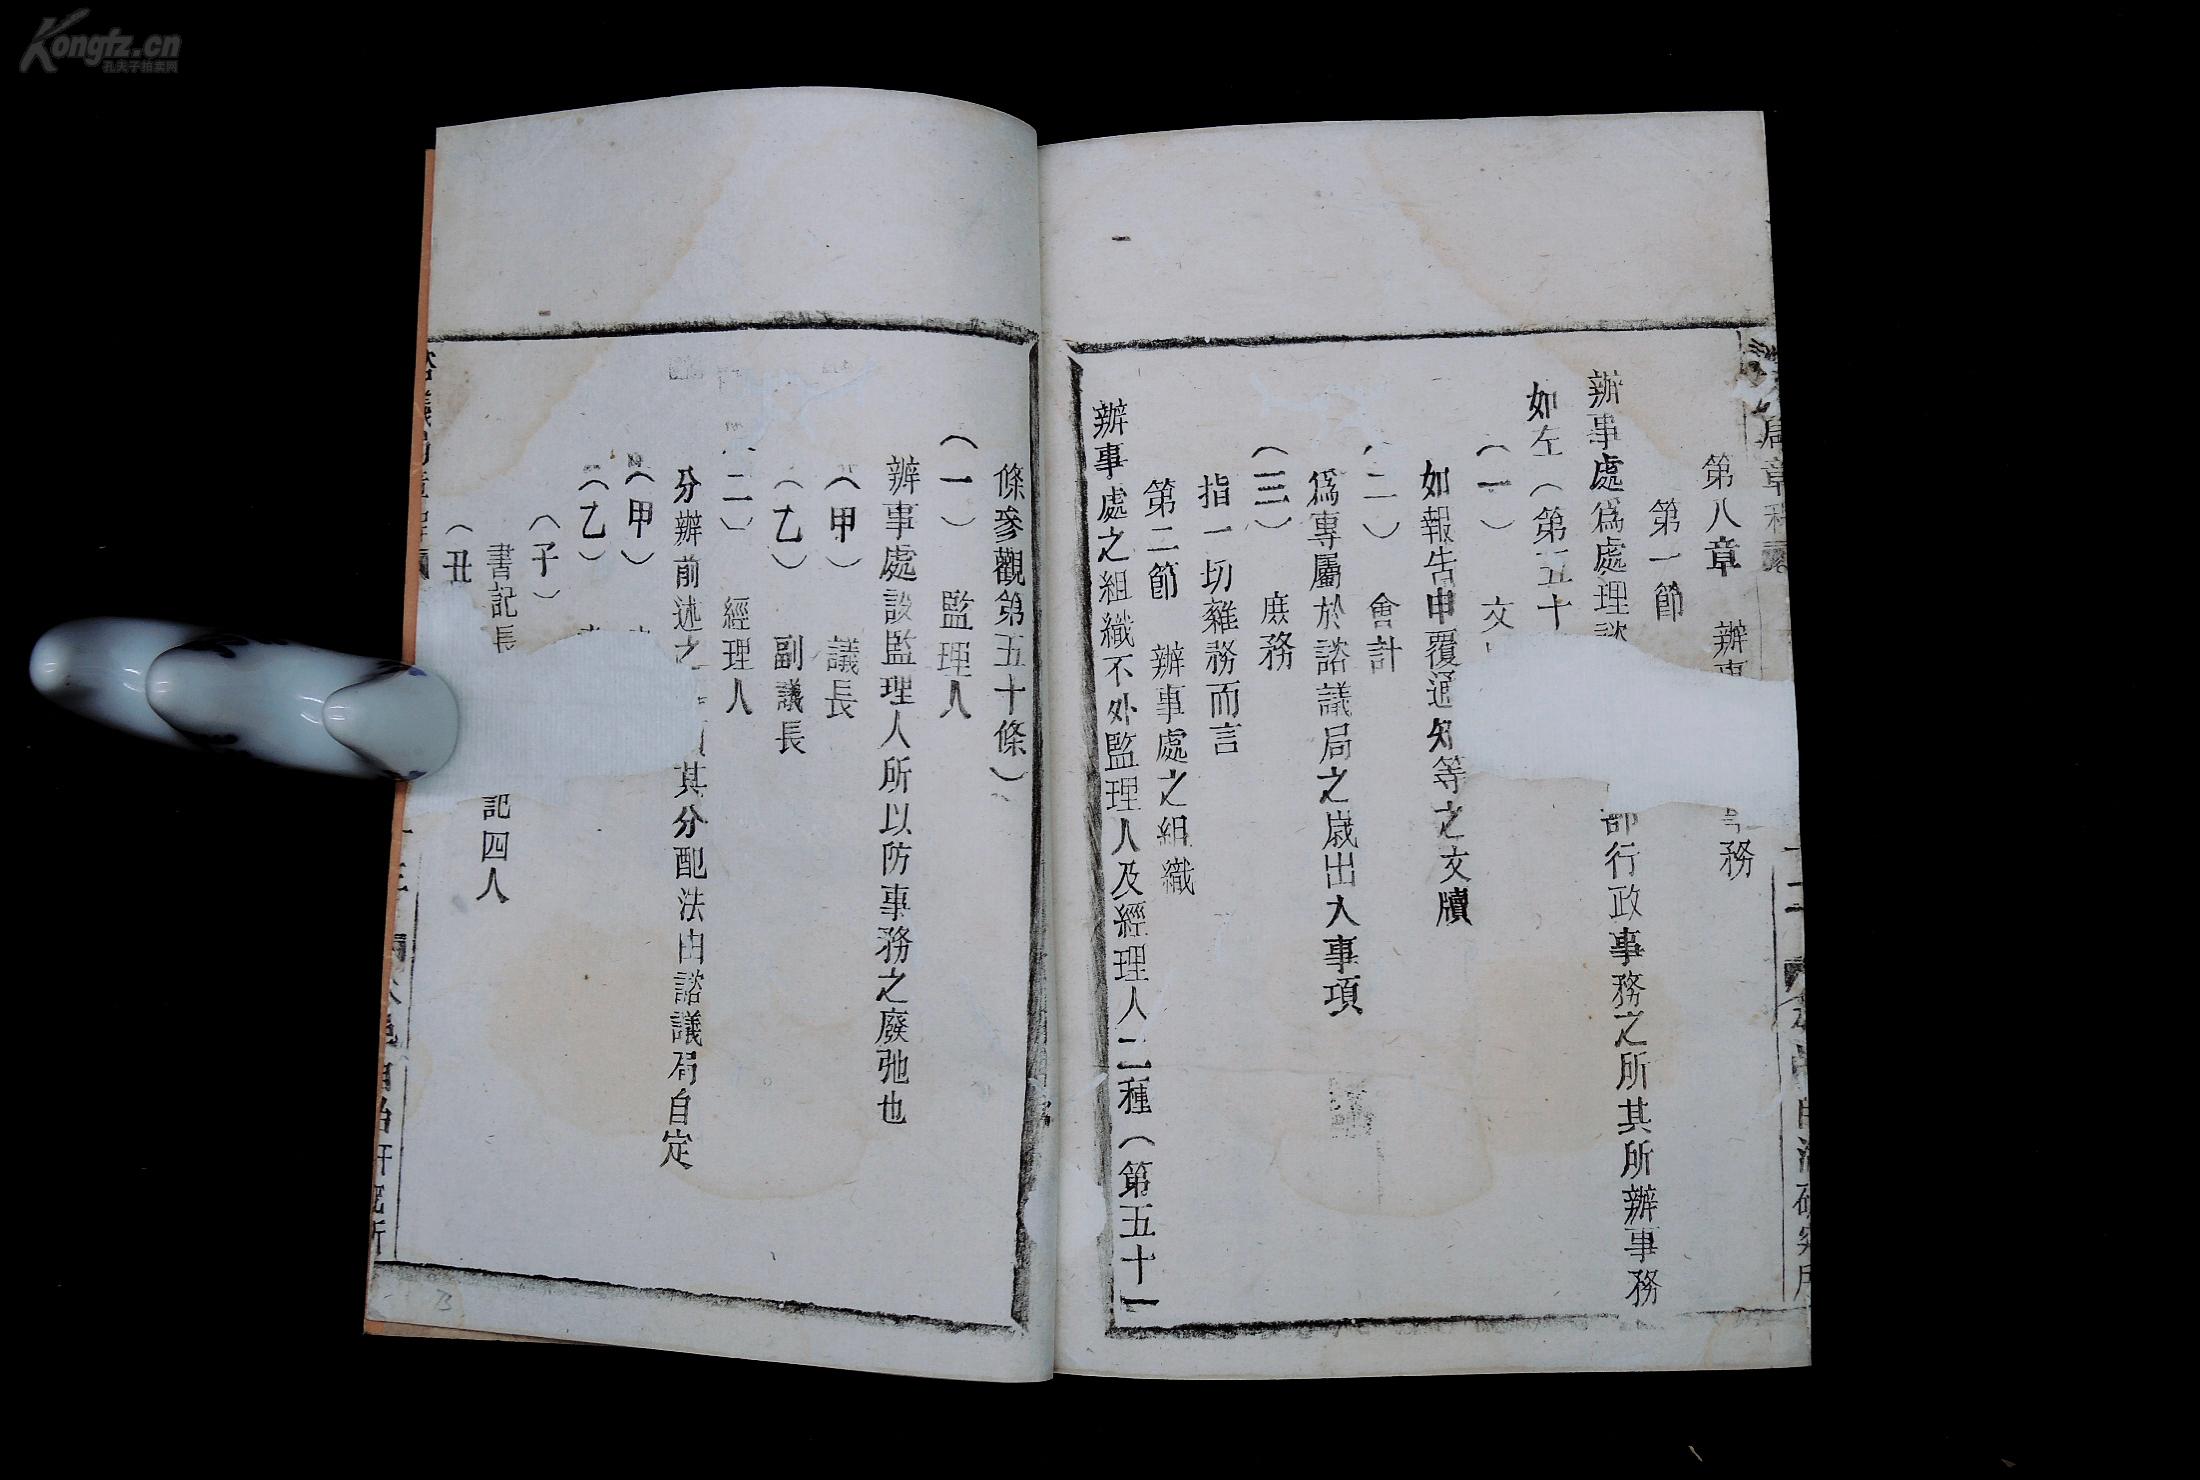 第八章 辦事務
第一節
辦事處爲處理部行政事務之所其所辦事務
如左（第五十
（一） 文
如報告申覆通知等之文牘
（二） 會計
爲專屬於諮議局之歲出入事項
（三） 庶務
指一切雜務而言
第二節 辦事處之組織
辦事處之組織不外監理人及經理人二種（第五十一
條參觀第五十條）
（一） 監理人
辦事處設監理人所以防事務之廢弛也
（甲） 議長
（乙） 副議長
（二） 經理人
分辦前述之其分配法由諮議局自定
（甲）
（乙）
（子）
書記長記四人
（丑
Kongfz.cn
孔夫子拍卖网